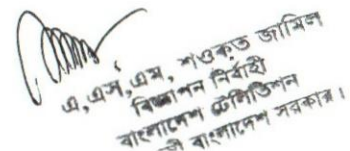 এ,এস,এম, শওকত জামিল
বিজ্ঞাপন নির্বাহী
বাংলাদেশ টেলিভিশন
বাংলাদেশ সরকার।